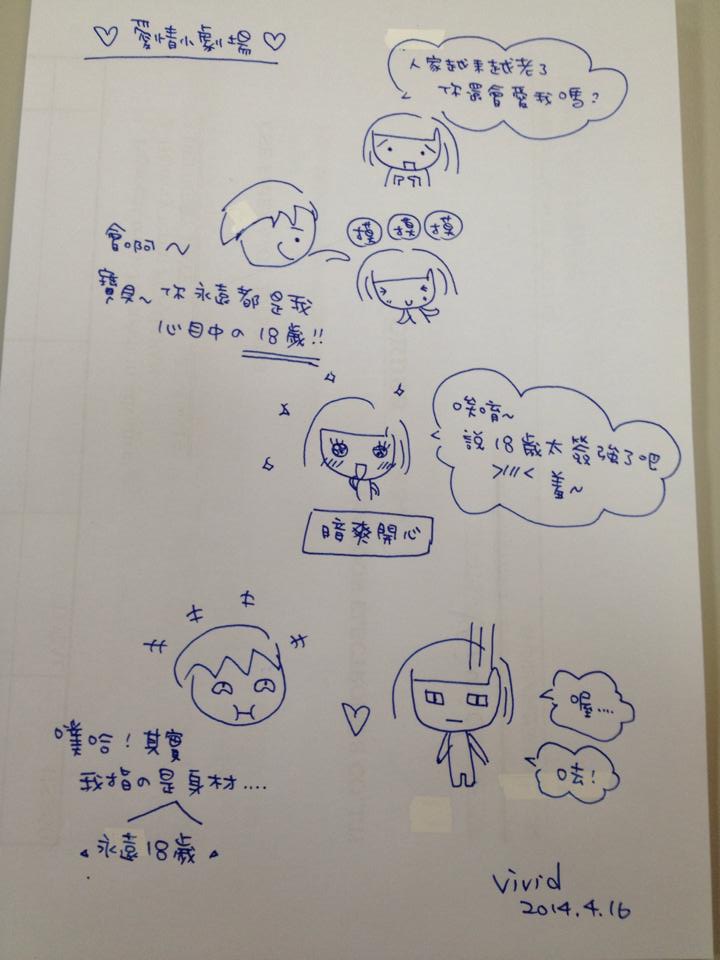 ♡ 愛情小劇場 ♡
人家越來越老了
你還會愛我嗎?
摸 摸 摸
會啊~
寶貝~你永遠都是我
心目中の18歲!!
唉唷~
說18歲太簽強了吧
>///<
羞~
暗爽開心
噗哈!其實
我指の是身材....
永遠18歲
喔....
呿!
vivid
2014.4.16